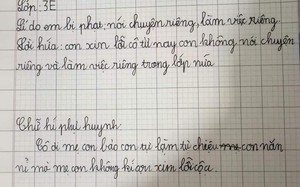 Lớp: 3E
Lí do em bị phạt: nói chuyện riêng, làm việc riêng
Lời hứa: con xin lỗi cô từ nay con không nói chuyện
riêng và làm việc riêng trong lớp nữa.
Chữ kí phụ huynh
Cô ơi mẹ con bảo con tự làm tự chiệu con năn
nỉ mà mẹ con khhông kí con xin lỗi cô ạ.